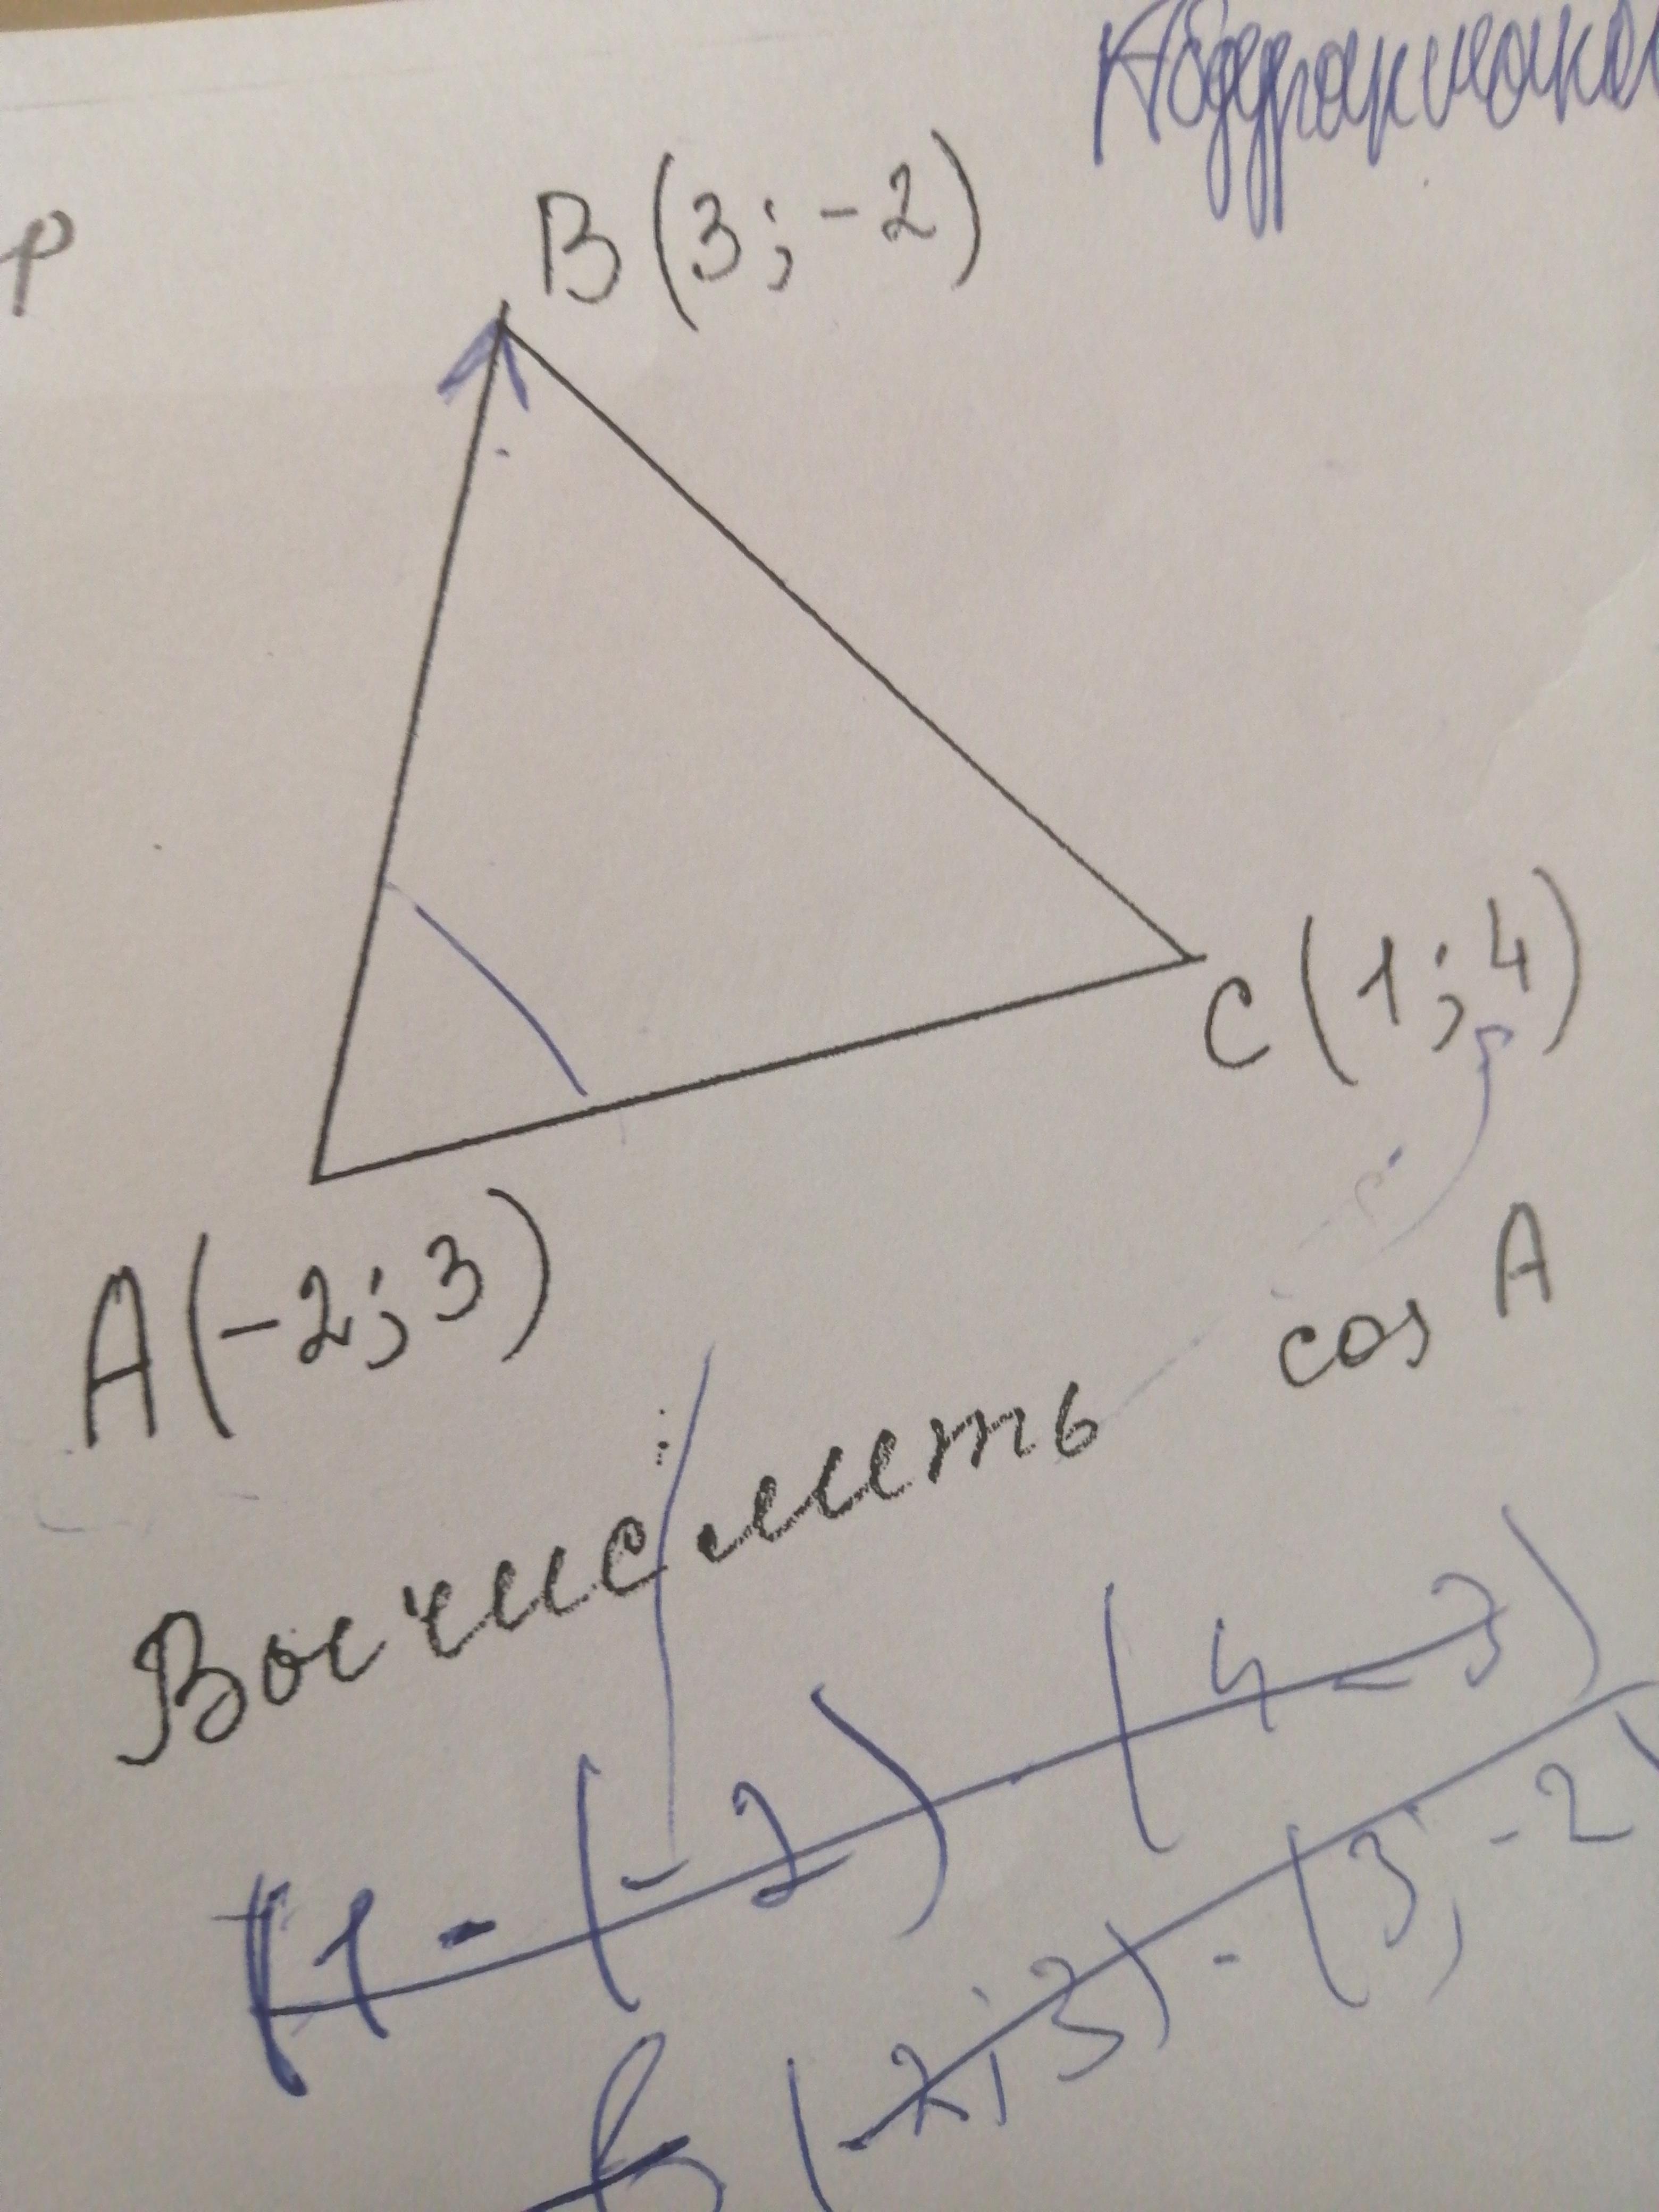 р
B(3;-2)
C(1;4)
A(-2;3)
Вычислить cos A
(1-(-2) (4-3)
(-2;3)-(3;-2)